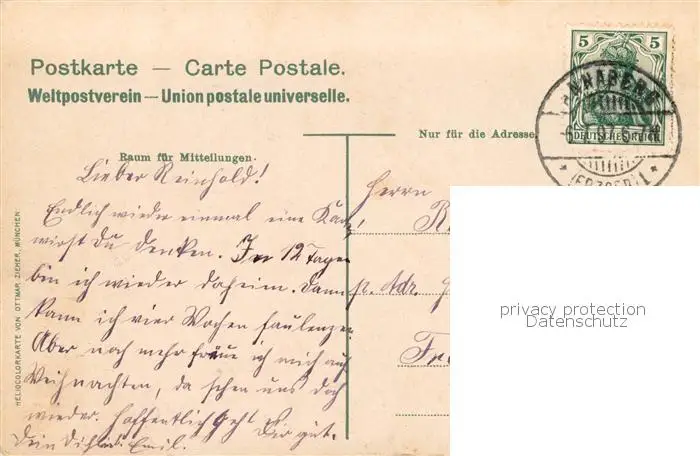 5 5
DEUTSCHES REICH
ANNABERG
(ERZGEB.) 1
Postkarte — Carte Postale.
Weltpostverein — Union postale universelle.
Nur für die Adresse
Raum für Mitteilungen.
Lieber Reinhold!
Endlich wieder einmal eine Karte,
wirst Du denken. In 12 Tagen
bin ich wieder daheim. Dann
kann ich vier Wochen faulenzen
Aber noch mehr freue ich mich auf
Weihnachten, da sehen uns doch
wieder. Hoffentlich geht es
Dir gut.
Dein Emil.
Herrn
p. Adr.
HELIOCOLORKARTE VON OTTMAR ZIEHER, MÜNCHEN
privacy protection
Datenschutz